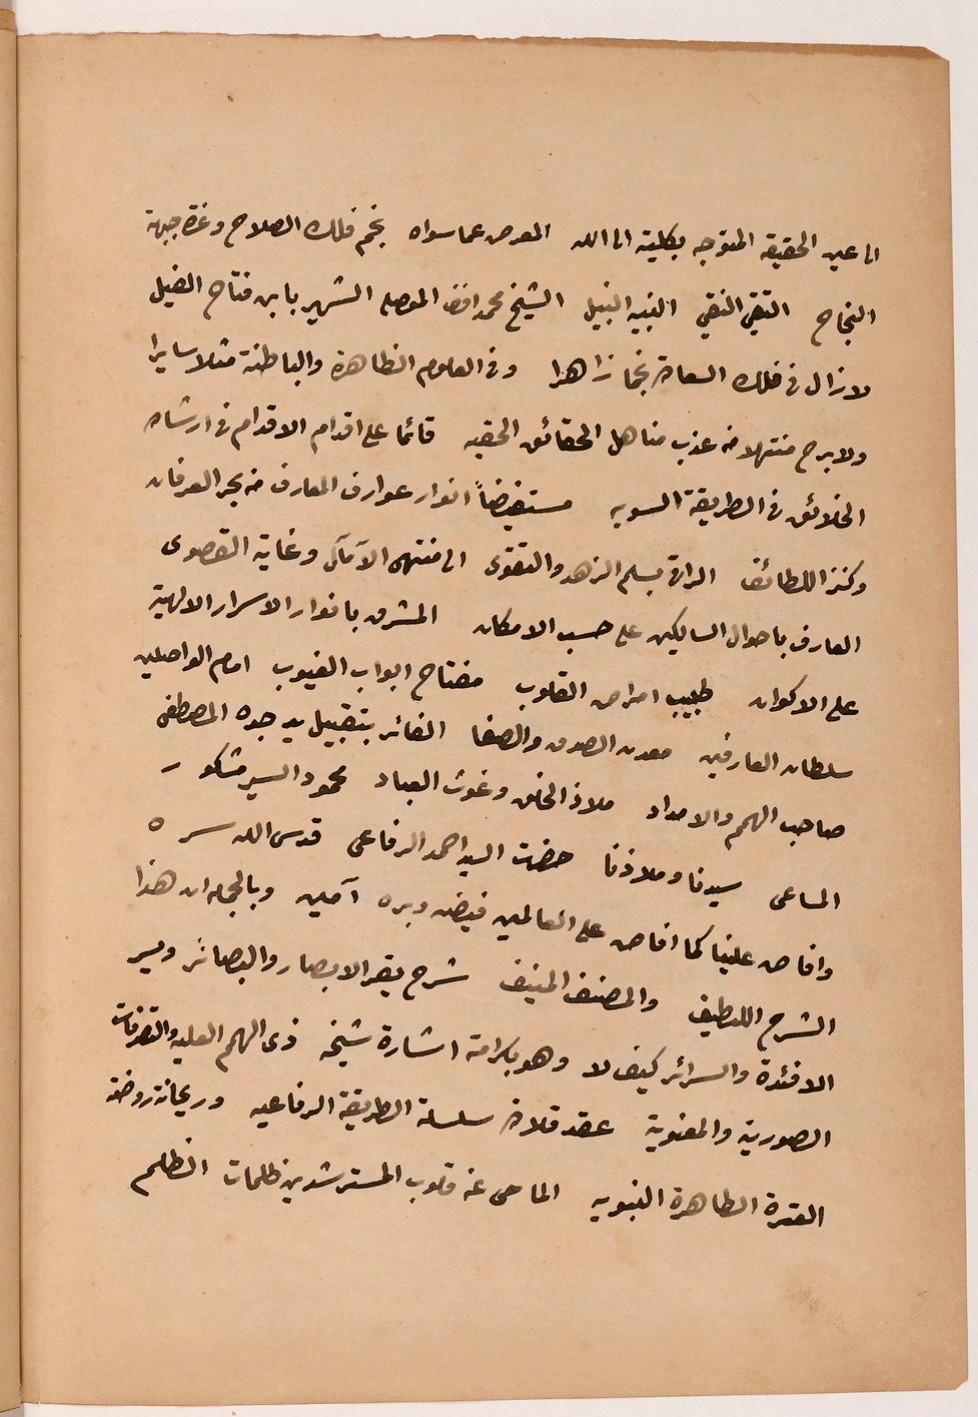 الى عين الحقيقه المتوجه بكليته الى الله المعرض عما سواه نجم فلك الصلاح وغرة جبهة
النجاح التقي النقي النبيه النبيل الشيخ محمد افندي الموصلي الشهير بابن فتاح الفيل
لازال في فلك السعادة نجما زاهرا وفي العلوم الظاهرة والباطنة مثلا سايرا
ولا برح منتهلا من عذب مناهل الحقائق الحقيه قائما على اقدام الاقدام في ارشاد
الخلائق في الطريقة السويه مستفيضاً انوار عوارف المعارف من بحر العرفان
وكنز اللطائف الراقي بسلم الزهد والتقوى الى منتهى الآمال وغاية القصوى
العارف باحوال السالكين على حسب الامكان المشرق بانوار الاسرار الالهية
على الاكوان طبيب امراض القلوب مفتاح ابواب الغيوب امام الواصلين
سلطان العارفين معدن الصدق والصفا الفائز بتقبيل يد جده المصطفى
صاحب الهمم والامداد ملاذ الخلق وغوث العباد محمود السير مشكور
المساعى سيدنا وملاذنا حضرت السيد احمد الرفاعى قدس الله سره
وافاض علينا كما افاض على العالمين فيضه وبره آمين وبالجمله ان هذا
الشرح اللطيف والمصنف المنيف شرح يقر الابصار والبصائر ويسر
الافئدة والسرائر كيف لا وهو بكرامة اشارة شيخه ذى الهمم العليه والتصرفات
الصورية والمعنوية عقد قلادة سلسلة الطريقة الرفاعيه وريحانة روضة
العترة الطاهرة النبويه الماحى عن قلوب المسترشدين ظلمات الظلم